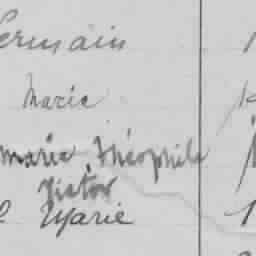 Germain
Marie
Marie Théophile
Victor
Marie